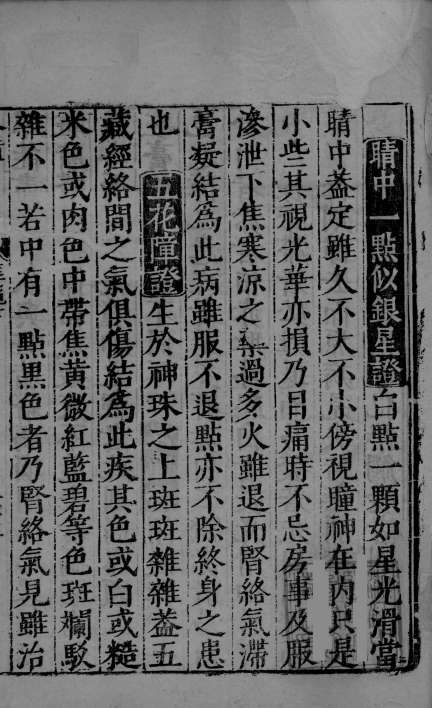 睛中一點似銀星證白點一顆如星光滑當
睛中葢定雖久不大不小傍視瞳神在内只是
小些其視光華亦損乃目痛時不忌房事及服
滲泄下焦寒涼之藥過多火雖退而腎絡氣滯
膏凝結為此病雖服不退點亦不除終身之患
也 五花障證生於神珠之上斑斑雜雜葢五
藏經絡間之氣俱傷結為此疾其色或白或糙
米色或肉色中帶焦黃微紅藍碧等色斑斕駁
雜不一若中有一點黑色者乃腎絡氣見雖治